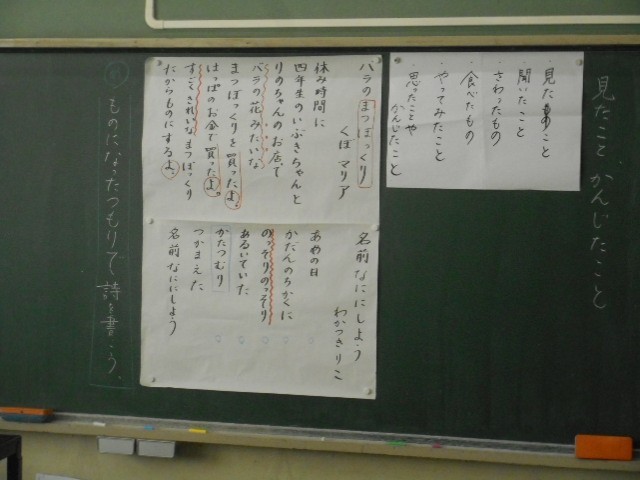 見たこと かんじたこと
・見たこと
・聞いたこと
・さわったもの
・食べたもの
・やってみたこと
・思ったことや
かんじたこと
バラのまつぼっくり
くぼ マリア
休み時間に
四年生のいぶきちゃんと
りのちゃんのお店で
バラの花みたいな
まつぼっくりを買ったよ。
はっぱのお金で買ったよ。
すごくきれいなまつぼっくり
たからものにするよ。
名前なににしよう
わかつきりこ
あめの日
かだんのちかくに
のっそりのっそり
あるいていた
かたつむり
つかまえた
名前なににしよう
ものになったつもりで詩を書こう。